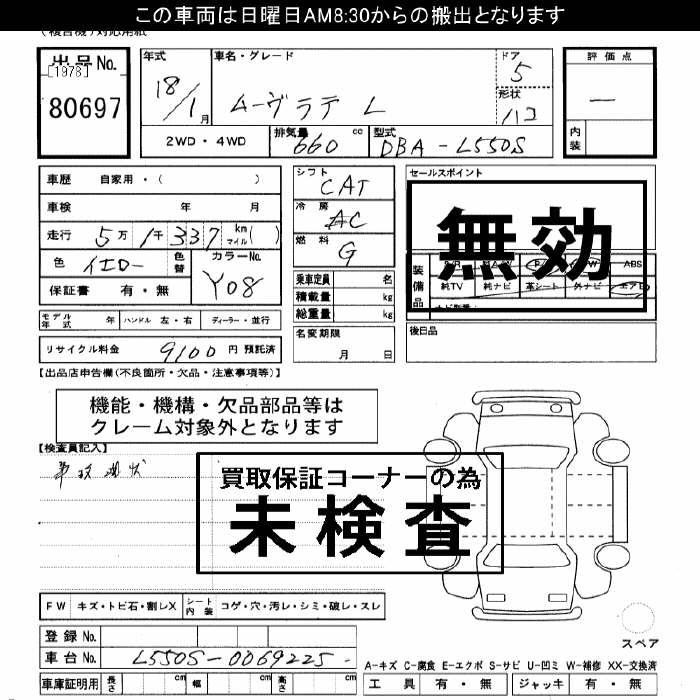 この車両は日曜日AM8:30からの搬出となります
(複合機)対応用紙
出品No.
[1978]
80697
年式
18/1月
車名・グレード
ムーヴラテ L
ドア
5
形状
ハコ
評価点
—
内装
2WD・4WD
排気量 660 cc
型式 DBA-L550S
車歴 自家用・( )
車検 年 月
走行 5万1千337 km マイル( )
色 イエロー 色替
カラーNo. Y08
保証書 有・無
モデル年式 年 ハンドル 左・右 ディーラー・並行
リサイクル料金 9100 円 預託済
シフト CAT
冷房 AC
燃料 G
乗車定員 名
積載量 kg
総重量 kg
名変期限
月 日
セールスポイント
無効
装備品
ABS
純TV 純ナビ 革シート 外ナビ エアB
後日品
【出品店申告欄(不良箇所・欠品・注意事項等)】
機能・機構・欠品部品等は
クレーム対象外となります
【検査員記入】
現状
買取保証コーナーの為
未検査
FW キズ・トビ石・割レX シート内装 コゲ・穴・汚レ・シミ・破レ・スレ
登録No.
車台No. L550S-0069225
車庫証明用 長さ cm 幅 cm 高さ cm
スペア
A-キズ C-腐食 E-エクボ S-サビ U-凹ミ W-補修 XX-交換済
工具 有・無 ジャッキ 有・無